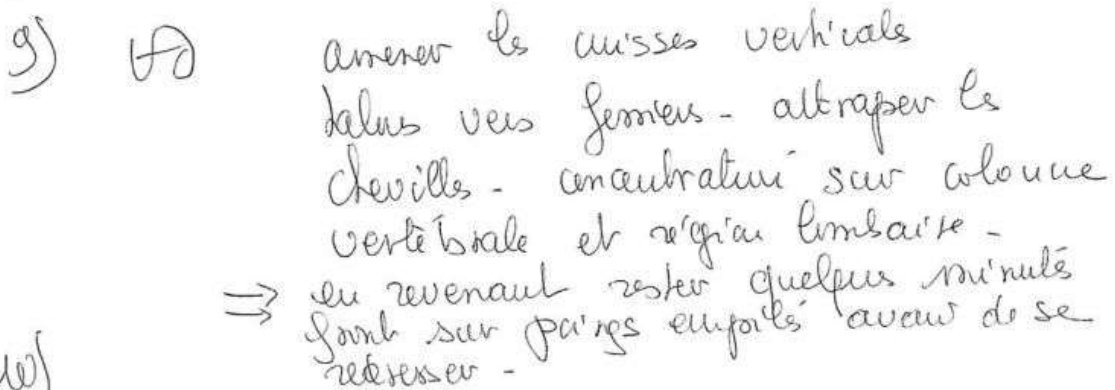 9) amener les cuisses verticales
talus vers fessiers - attraper les
chevilles - concentration sur colonne
vertébrale et région lombaire -
⇒ en revenant rester quelques minutes
front sur poings empilés avant de se
redresser -
10)